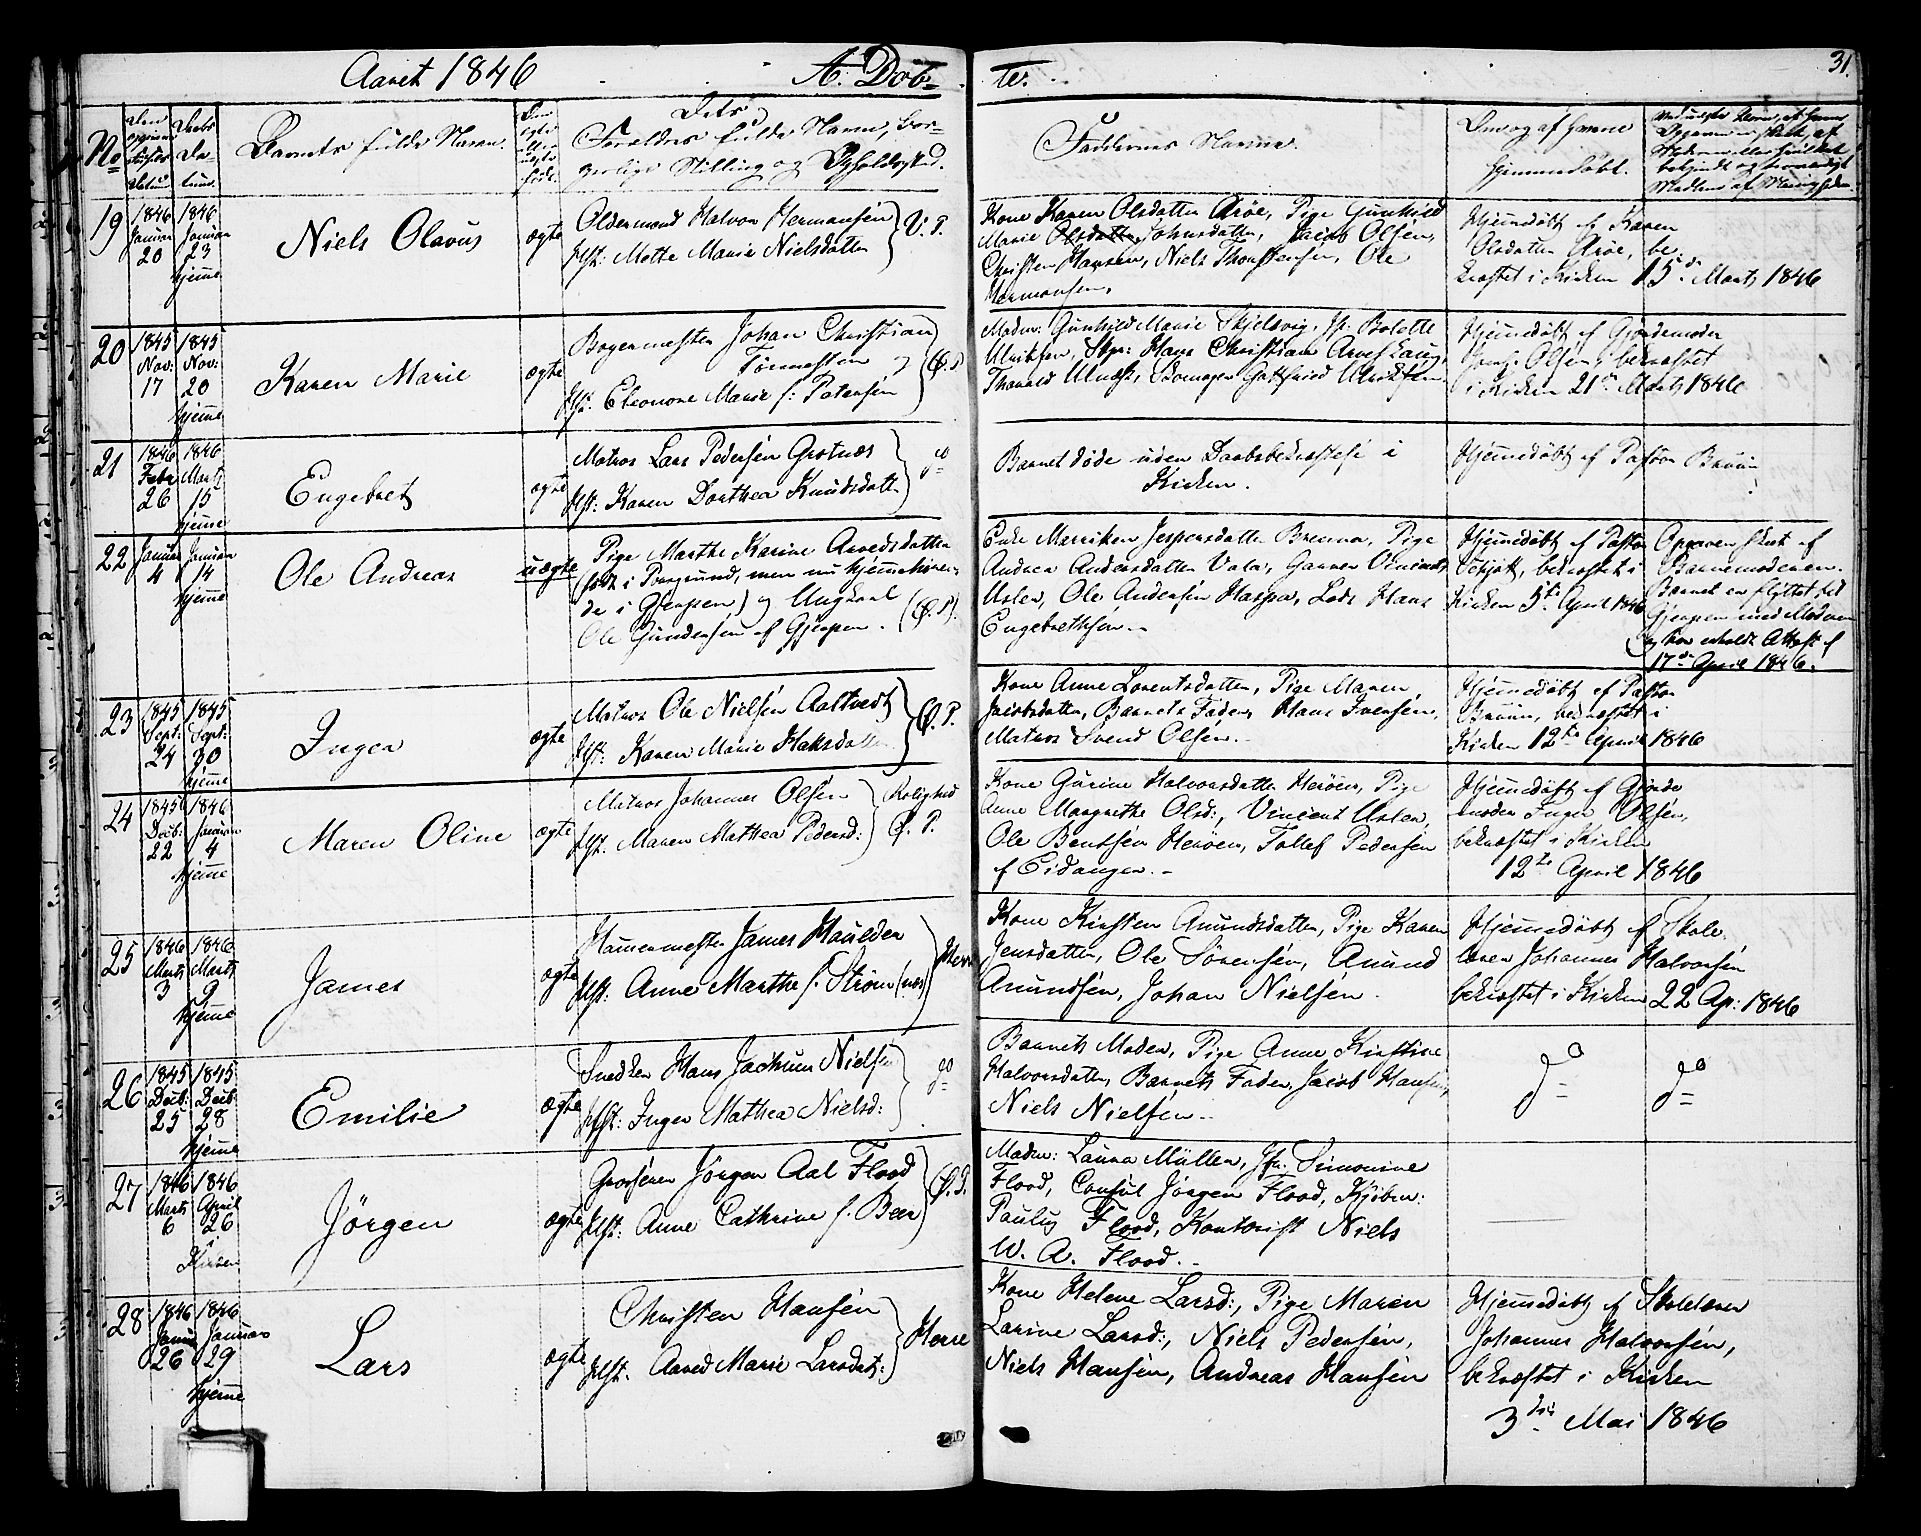 Aaret 1846 A. Döb= te. 31.
No
Barnets fulde Navn.
Dets
Forældres fulde Navn, bor=
gerlige Stilling og Opholdssted.
Faddernes Navne.
Om og af hvem
hjemmedöbt.
19
1846 Januar 20
1846 Januar 23 hjemme
Niels Olavus
ægte
Oldermand Halvor Hermansen
Hst: Mette Marie Nielsdatter
V. P.
Kone Karen Olsdatter Aröe, Pige Gunhild
Marie Olsdatter Johnsdatter, Jacob Olsen,
Christen Hansen, Niels Thorstensen, Ole
Hermansen.
Hjemmedöbt af Karen
Olsdatter Aröe, be-
kræftet i Kirken 15de Marts 1846
20
1845 Nov: 17
1845 Nov: 20 hjemme
Karen Marie
ægte
Bogermester Johan Christian
Tönnessen og
Hst: Eleonore Marie f: Petersen
Ö. P
Madm: Gunhild Marie Skjelsvig, Jf. Bolette
Ulriksen, Hans Christian
Thorvald Gottfried Ulriksen
Hjemmedöbt af Gjordemoder
Jomf: Olsen, bekræftet
i Kirken 21de Marts 1846
21
1846 Febr 26
1846 Marts 15 hjemme
Engebret
ægte
Matros Lars Pedersen Grotnæs
Hst: Karen Dorthea Knudsdatter
do
Barnet döde uden Daabsbekræftelse i
Kirken.
Hjemmedöbt af Pastor Bruun
22
Januar 4
Januar 14 hjemme
Ole Andreas
uægte
Pige Marthe Karine Arvedsdatter
(födt i Porsgrund, men nu hjemmehören-
de i Gjerpen) og Ungkarl
Ole Gundersen af Gjerpen. (Ö. P).
Enke Marriken Jespersdatter Brenna, Pige
Andrea Andersdatter Vala, Garver Vincent
Aslev, Ole Andersen Lods Hans
Engebrethsen.
Hjemmedöbt af Pastor
bekræftet i
Kirken 5te April 1846
Opgaven skeet af
Barnemoderen.
Barnet er flyttet til
Gjerpen med Moderen
og har erholdt Attest af
17de April 1846.
23
1845 Sept: 24
1845 Sept: 30 hjemme
Inger
ægte
Matros Ole Nielsen Aaltvedt
Hst: Karen Marie
Ö. P.
Kone Anne Lorentsdatter, Pige Maren
Jacobsdatter, Barnets Fader, Hans Iversen,
Matros Svend Olsen.
Hjemmedöbt af Pastor
Bruun, bekræftet i
Kirken 12te April 1846
24
1845 Decb: 22
1846 Januar 4 hjemme
Maren Oline
ægte
Matros Johannes Olsen
Hst. Maren Mathea Pedersd:
Rolighed
Ö. P.
Kone Gurine Halvorsdatter Heröen, Pige
Anne Margrethe Olsd:, Vincent Aslev,
Ole Bentsen Heröen, Tollef Pedersen
af Eidanger.
Hjemmedöbt af Gjorde
moder Inger Olsen,
bekræftet i Kirken
12te April 1846
25
1846 Marts 3
1846 Marts 9 hjemme
James
ægte
Hammermester James Haulder
Hst: Anne Marthe f. Ström (næs)
Herre
Kone Kirsten Amundsdatter, Pige Karen
Jensdatter, Ole Sörensen, Amund
Amundsen, Johan Nielsen.
Hjemmedöbt af Skole
lærer Johannes Halvorsen
bekræftet i Kirken 22 Ap: 1846
26
1845 Decb: 25
1845 Decb: 28 hjemme
Emilie
ægte
Snedker Hans Jochum Nielsen
Hst: Inger Mathea Nielsd:
do
Barnets Moder, Pige Anne Kirstine
Halvorsdatter, Barnets Fader, Jacob Hansen,
Niels Nielsen.
do
do
27
1846 Marts 6
1846 April 26 i Kirken
Jörgen
ægte
Grosserer Jörgen Aal Flood
Hst: Anne Cathrine f. Beer
Ö. P.
Madm: Laura Müller, Jfr. Simonine
Flood, Consul Jörgen Flood, Kjöbm:
Paulus Flood, Kontorist Niels
W. A. Flood.
28
1846 Januar 26
1846 Januar 29 hjemme
Lars
ægte
Christen Hansen
Hst. Aaved Marie Larsdat:
Herre
Kone Helene Larsd:, Pige Maren
Larine Larsd:, Niels Pedersen,
Niels Hansen, Andreas Hansen
Hjemmedöbt af Skolelærer
Johannes Halvorsen,
bekræftet i Kirken
3die Mai 1846